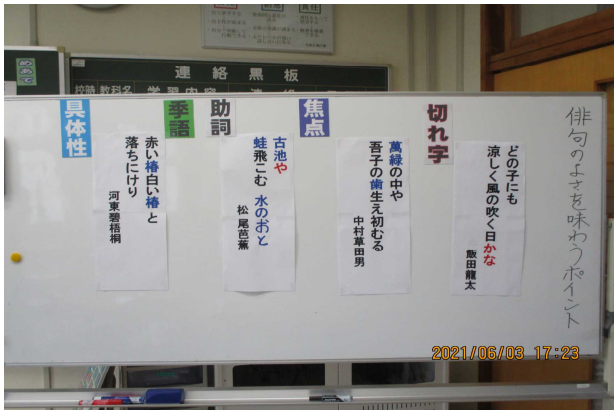 めあて
連絡黒板
校時 教科名 学習内容 連
俳句のよさを味わうポイント
切れ字
どの子にも
涼しく風の吹く日かな
飯田龍太
焦点
萬緑の中や
吾子の歯生え初むる
中村草田男
助詞
古池や
蛙飛こむ 水のおと
松尾芭蕉
季語
具体性
赤い椿白い椿と
落ちにけり
河東碧梧桐
2021/06/03 17:23